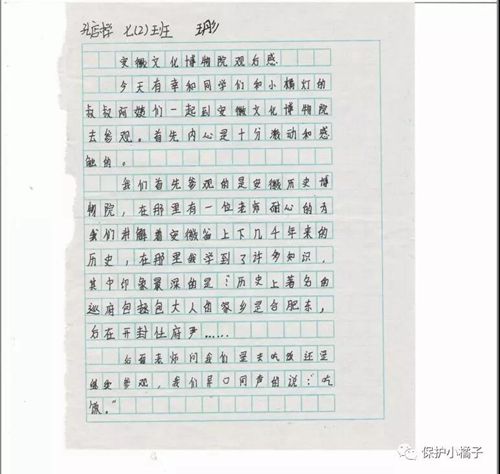 孔店学 七(2)班 王彤
安徽文化博物院观后感
今天有幸和同学们和小橘灯的
叔叔阿姨们一起到安徽文化博物院
去参观。首先内心是十分激动和感
触的。
我们首先参观的是安徽历史博
物院，在那里有一位老师耐心的为
我们讲解着安徽省上下几千年来的
历史，在那里我学到了许多知识，
其中印象最深的是："历史上著名的
巡府包拯包大人的家乡是合肥东，
后在开封任府尹……
后面老师问我们是去吃饭还是
继续参观，我们异口同声的说："吃
饭。"
保护小橘子